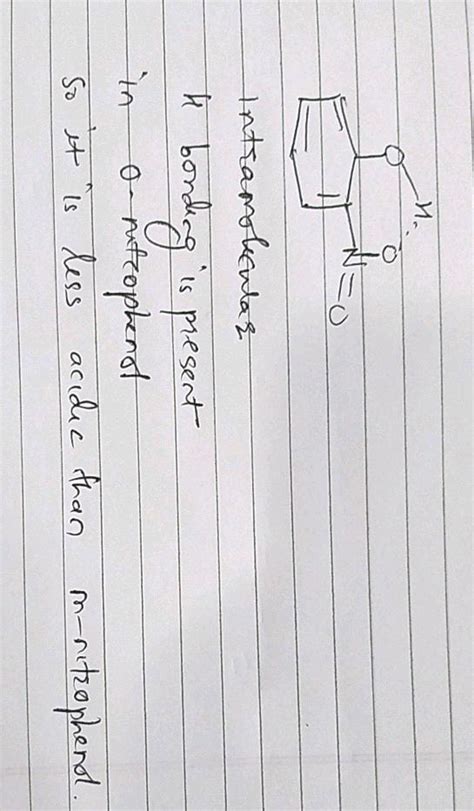 O H
O
N=O
Intramolecular
H bonding is present
in O-nitrophenol
So it is less acidic than m-nitrophenol.